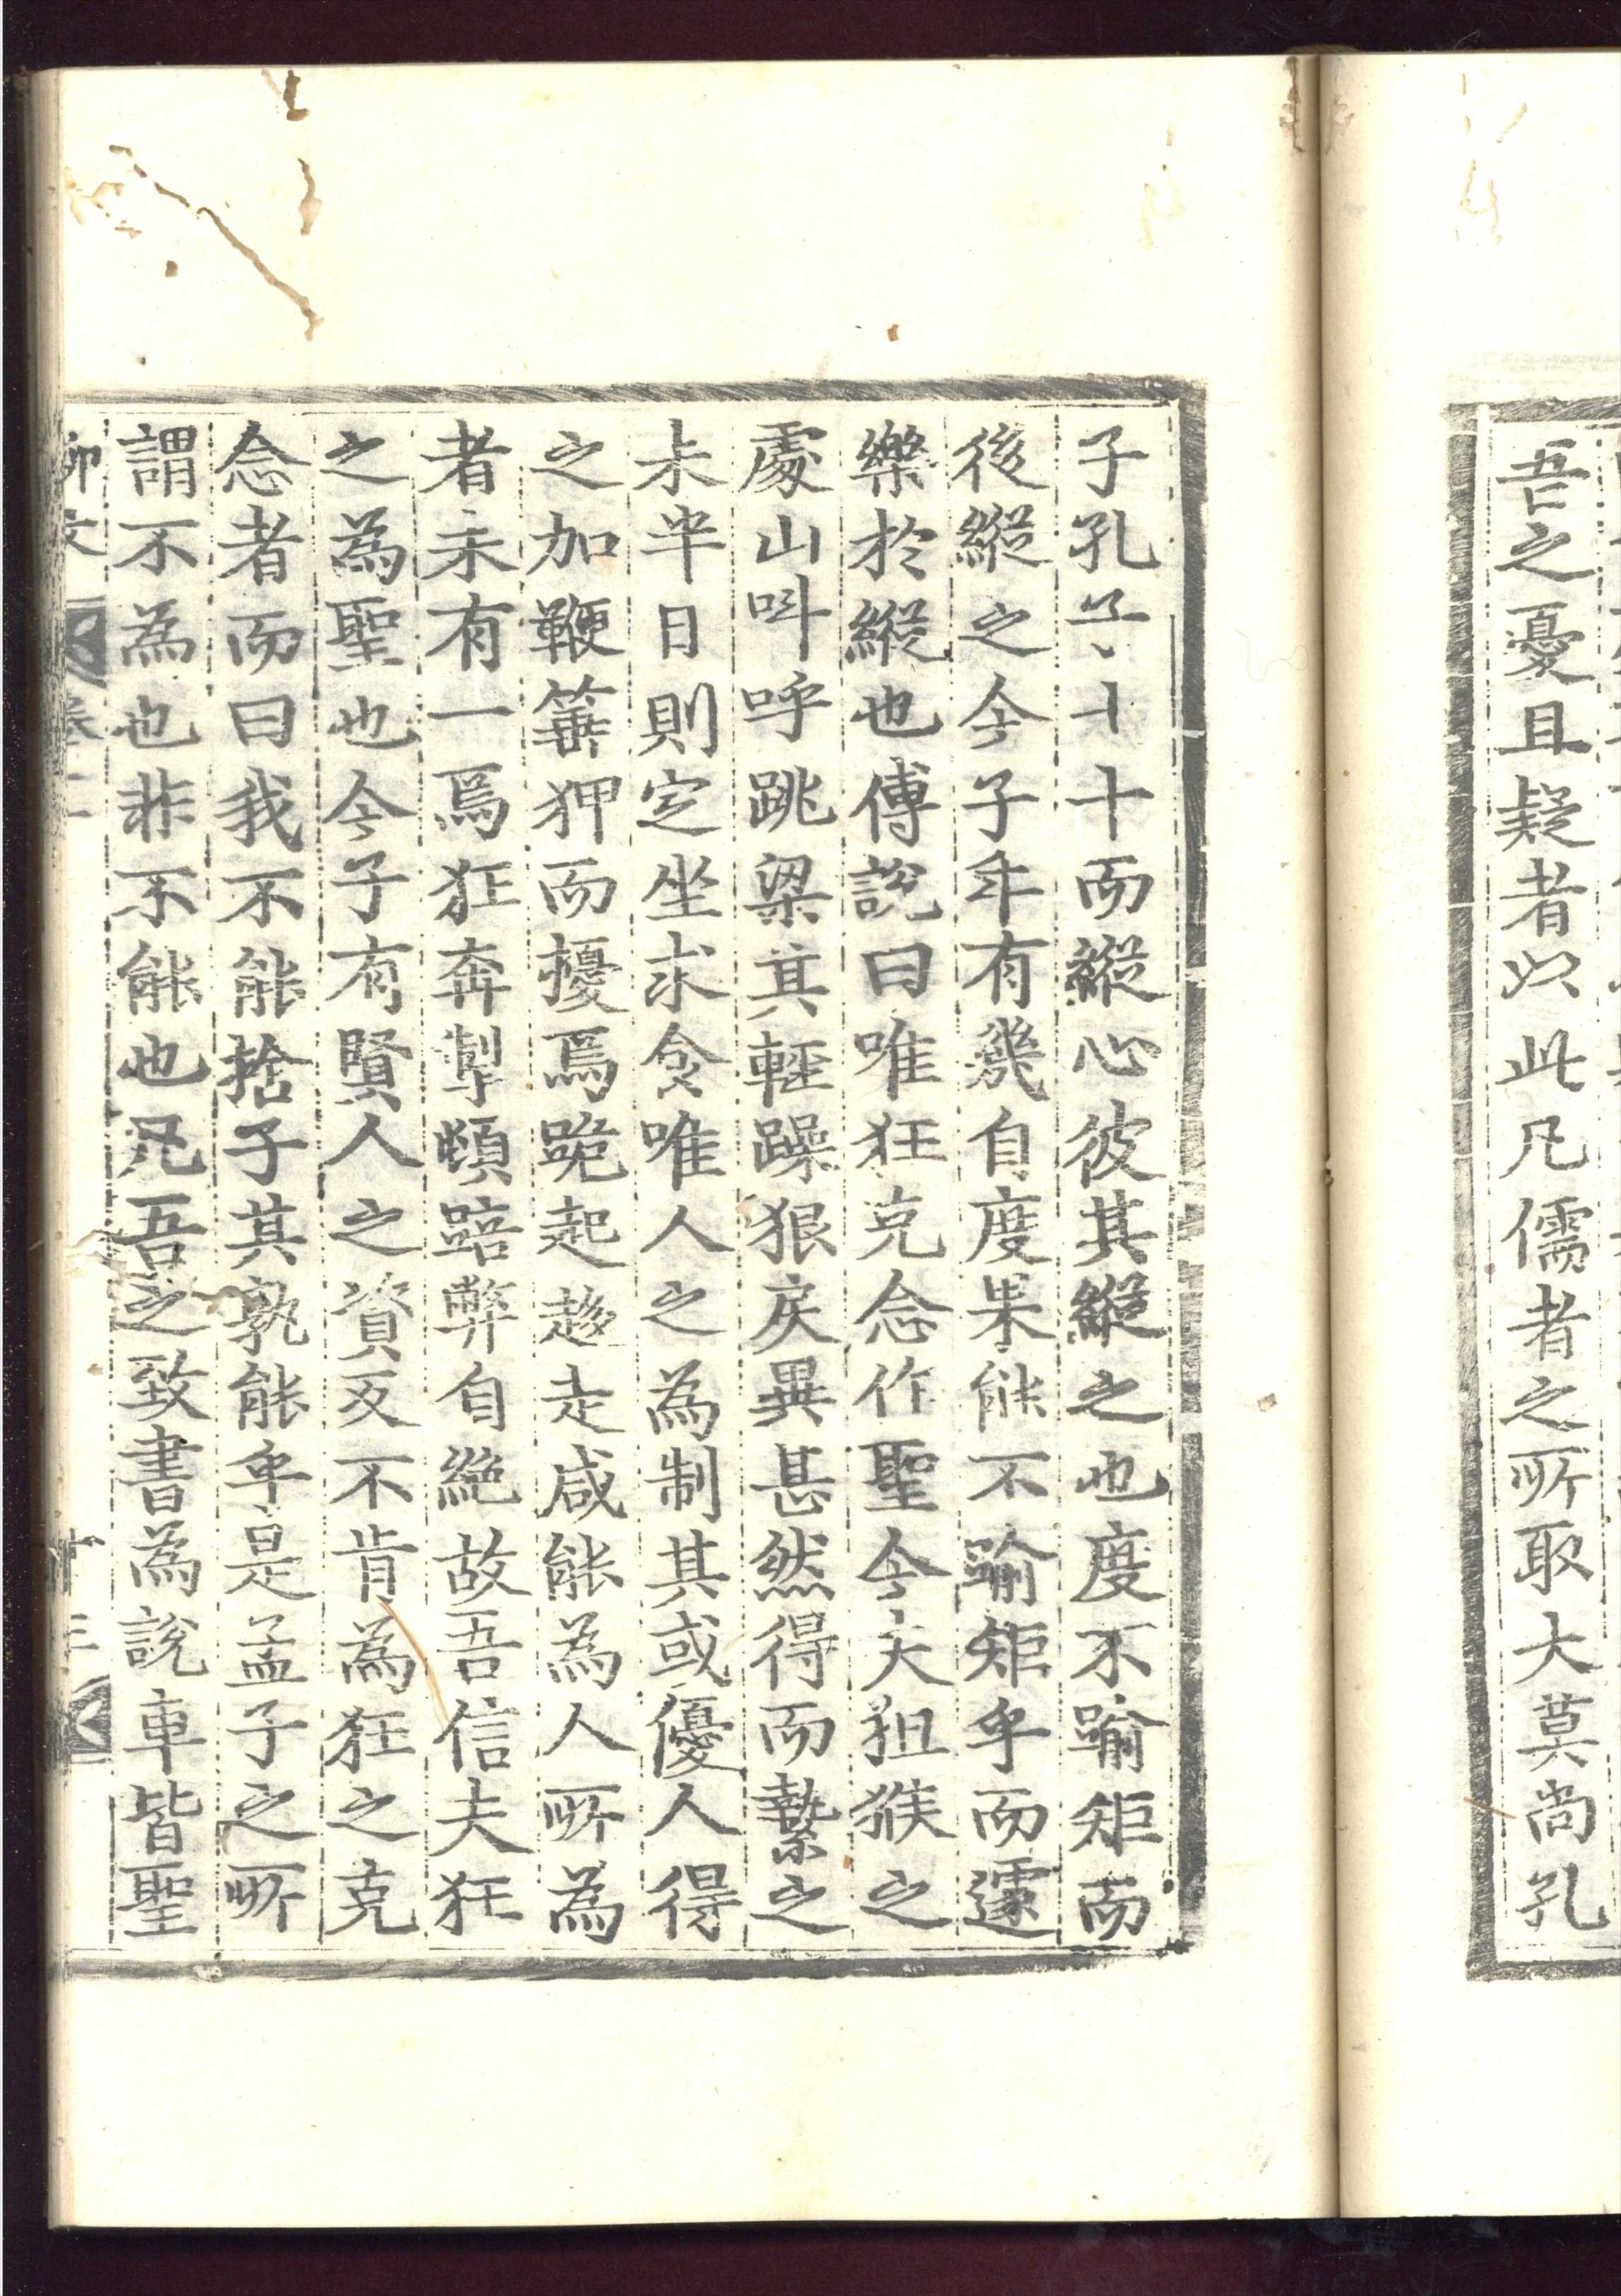 吾之憂且疑者以此凡儒者之所取大莫尚孔
子孔子十十而縱心彼其縱之也度不踰矩而
後縱之今子年有幾自度果能不踰矩乎而遽
樂於縱也傅說曰唯狂克念作聖今夫狙猴之
處山叫呼跳梁其輕躁狠戾異甚然得而縶之
未半日則定坐求食唯人之為制其或優人得
之加鞭箠狎而擾焉跪起趍走咸能為人所為
者未有一焉狂奔掣頓踣弊自絕故吾信夫狂
之為聖也今子有賢人之資反不肯為狂之克
念者而曰我不能捨子其孰能乎是孟子之所
謂不為也非不能也凡吾之致書為說車皆聖
柳文 卷十 十三